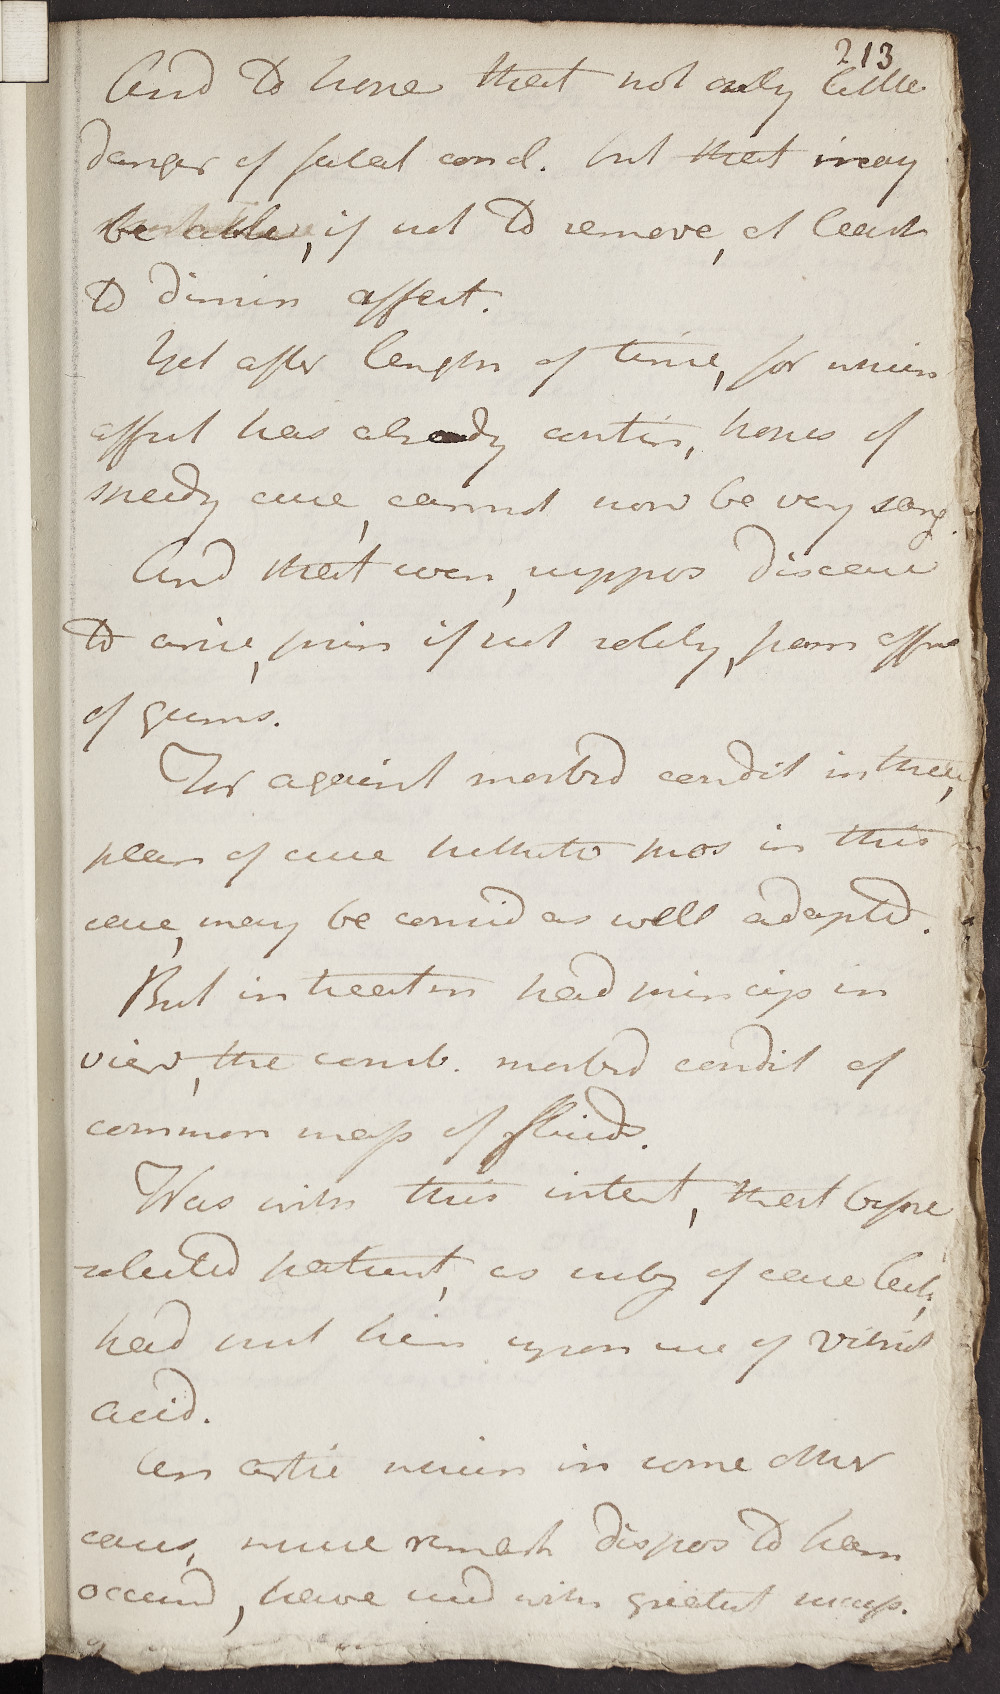 213
And to hope that not only little
danger of fatal concl. but that may
be able, if not to remove, at least
to dimin affect.
Yet after length of time, for which
affect has already contin, hopes of
speedy cure, cannot now be very sang.
And that even, suppos disease
to arise, prin if not solely, from affec
of gums.
For against morbid condit in these,
plan of cure hitherto pros in this
case, may be consid as well adapted.
But in treatm had princip in
view, the comb. morbid condit of
common mass of fluids.
Was with this intent, that before
selected patient, as subj of case lect,
had put him upon use of vitriol
acid.
An artic which in some other
cases, where remark dispos to hem
occurred, have used with greatest success.